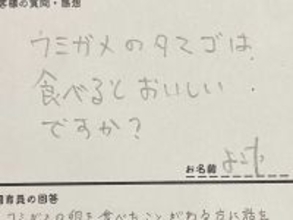 客様の質問・感想
ウミガメのタマゴは
食べるとおいしい
ですか？
お名前
飼育員の回答
ウミガメの卵を食べたことがある方に話を